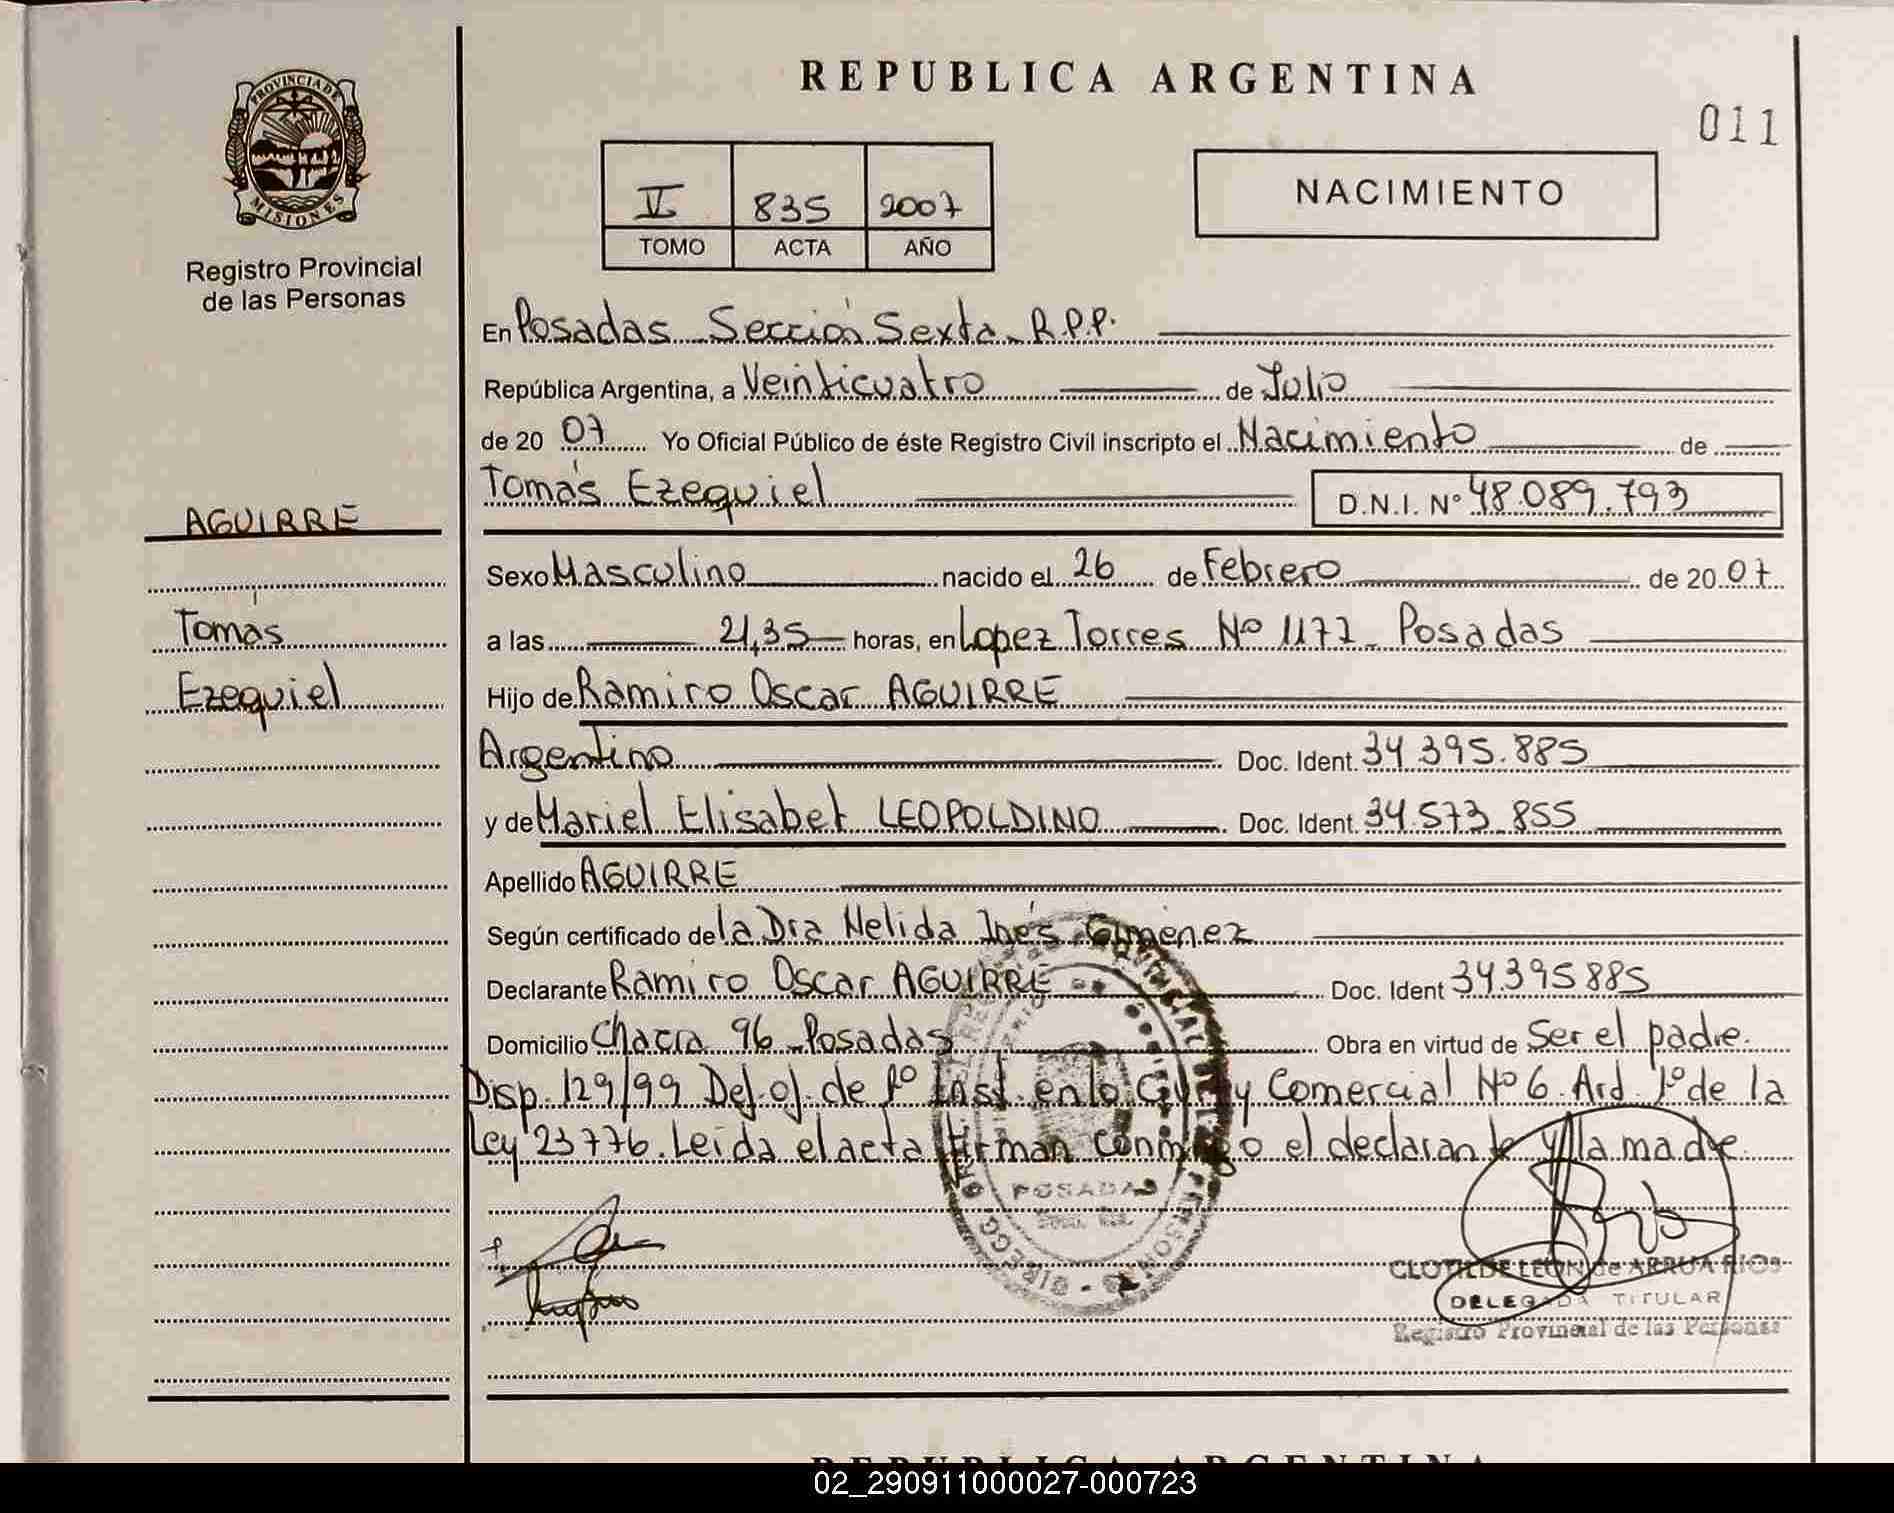 PROVINCIA DE
MISIONES
Registro Provincial
de las Personas
AGUIRRE
Tomás
Ezequiel
REPUBLICA ARGENTINA
011
V 835 2007
TOMO ACTA AÑO
NACIMIENTO
En Posadas Sección Sexta R.P.P.
República Argentina, a Veinticuatro de Julio
de 20 07 Yo Oficial Público de éste Registro Civil inscripto el Nacimiento de
Tomás Ezequiel D.N.I. Nº 48.089.793
Sexo Masculino nacido el 26 de Febrero de 20 07
a las 21,35 horas, en Lopez Torres Nº 1177 - Posadas
Hijo de Ramiro Oscar AGUIRRE
Argentino Doc. Ident. 34.395.885
y de Mariel Elisabet LEOPOLDINO Doc. Ident. 34.573.855
Apellido AGUIRRE
Según certificado de la Dra Nelida Inés Gimenez
Declarante Ramiro Oscar AGUIRRE Doc. Ident 34.395885
Domicilio Chacra 96 - Posadas Obra en virtud de Ser el padre.
Disp. 129/99 Del oj. de 1º Inst. en lo Civil y Comercial Nº 6. Ard. 1º de la
Ley 23776. Leida el acta firman conmigo el declarante y la madre
POSADAS
CLOTILDE LEON de ARRUA RIOS
DELEGADA TITULAR
Registro Provincial de las Personas
REPUBLICA ARGENTINA
02_290911000027-000723